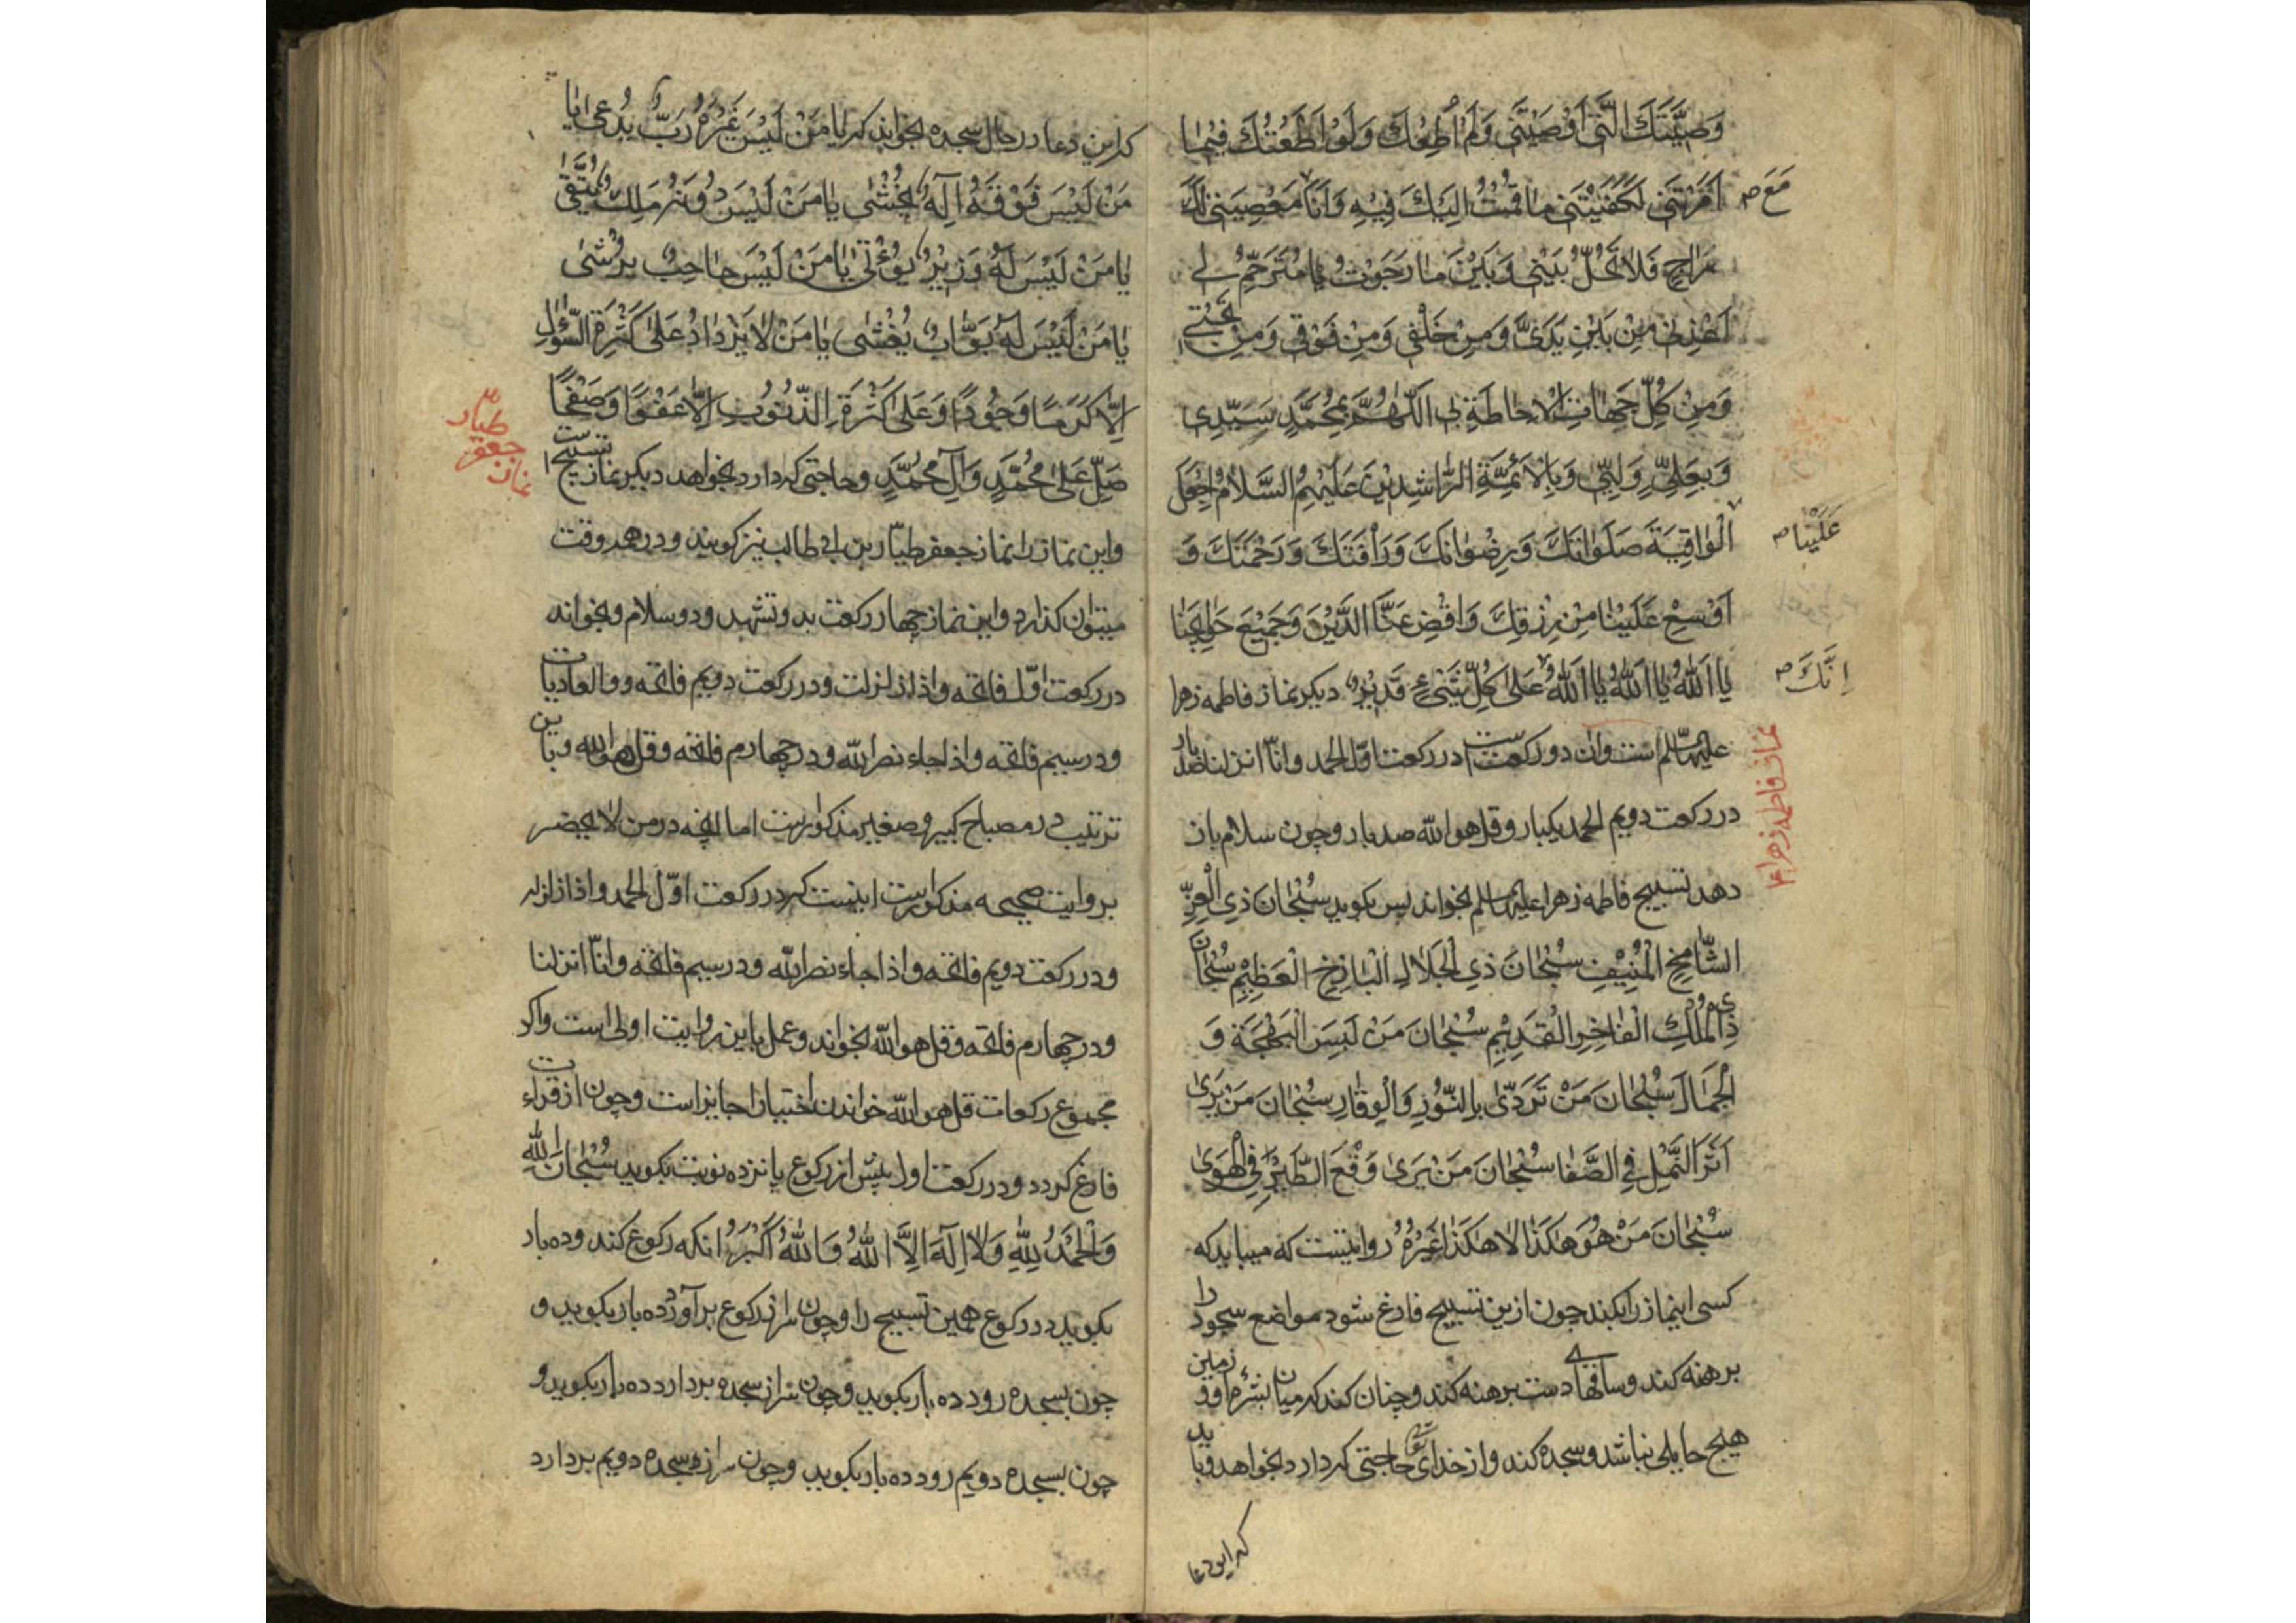 وَصِيَّتَكَ الَّتِي أَوْصَيْتَنِي وَلَمْ أُطِعْكَ وَلَوْ أَطَعْتُكَ فِيمَا
أَمَرْتَنِي لَكَفَيْتَنِي مَا قُمْتُ إِلَيْكَ فِيهِ وَأَنَا مَعْصِيَتِي لَكَ
مَعَ ص
رَاجٍ فَلَا تَحُلْ بَيْنِي وَبَيْنَ مَا رَجَوْتُ يَا مُتَرَحِّمُ لِي
أَعِذْنِي مِنْ بَيْنِ يَدَيَّ وَمِنْ خَلْفِي وَمِنْ فَوْقِي وَمِنْ تَحْتِي
وَمِنْ كُلِّ جِهَاتِ الْإِحَاطَةِ بِي اللّٰهُمَّ بِمُحَمَّدٍ سَيِّدِي
وَبِعَلِيٍّ وَلِيِّي وَبِالْأَئِمَّةِ الرَّاشِدِيْنَ عَلَيْهِمُ السَّلَامُ اجْعَلْ
الْوَاقِيَةَ صَلَوَاتَكَ وَرِضْوَانَكَ وَرَأْفَتَكَ وَرَحْمَتَكَ وَ
عَلَيْنَا ص
أَوْسِعْ عَلَيْنَا مِنْ رِزْقِكَ وَاقْضِ عَنَّا الدَّيْنَ وَجَمِيْعَ حَوَائِجِنَا
يَا اَللّٰهُ يَا اَللّٰهُ يَا اَللّٰهُ عَلَى كُلِّ شَيْءٍ قَدِيْرٌ دیکر نماز فاطمه زهرا
اِنَّكَ ص
علیها السلم است وان دو رکعت است در رکعت اوّل الحمد وانّا انزلنا صد بار
نماز فاطمه زهرا ع
در رکعت دویم الحمد یکبار وقل هو الله صد بار وچون سلام باز
دهد تسبیح فاطمه زهرا علیها السلم بخواند پس بکوید سُبْحَانَ ذِي الْعِزِّ
الشَّامِخِ الْمُنِيْفِ سُبْحَانَ ذِي الْجَلَالِ الْبَاذِخِ الْعَظِيْمِ سُبْحَانَ
ذِي الْمُلْكِ الْفَاخِرِ الْقَدِيْمِ سُبْحَانَ مَنْ لَبِسَ الْبَهْجَةَ وَ
الْجَمَالَ سُبْحَانَ مَنْ تَرَدّٰى بِالنُّوْرِ وَالْوِقَارِ سُبْحَانَ مَنْ يَرٰى
اَثَرَ النَّمْلِ فِي الصَّفَا سُبْحَانَ مَنْ يَرٰى وَقْعَ الطَّيْرِ فِي الْهَوٰى
سُبْحَانَ مَنْ هُوَ هٰكَذَا لَا هٰكَذَا غَيْرُهُ روایتست که میباید که
کسی اینماز را بکند چون ازین تسبیح فارغ شود مواضع سجود را
برهنه کند وساقهای دست برهنه کند وچنان کند که میان بشره او و زمین
هیچ حایلی نباشد وسجده کند واز خدای تع حاجتی که دارد بخواهد وباید
که این دعا
که این دعا در حال سجده بخواند که یَا مَنْ لَيْسَ غَيْرَهُ رَبٌّ يُدْعٰى يَا
مَنْ لَيْسَ فَوْقَهُ اِلٰهٌ يُخْشٰى يَا مَنْ لَيْسَ دُوْنَهُ مَلِكٌ يُتَّقٰى
يَا مَنْ لَيْسَ لَهُ وَزِيْرٌ يُؤْتٰى يَا مَنْ لَيْسَ حَاجِبٌ يُرْشٰى
يَا مَنْ لَيْسَ لَهُ بَوَّابٌ يُغْشٰى يَا مَنْ لَا يَزْدَادُ عَلٰى كَثْرَةِ السُّؤَالِ
اِلَّا كَرَمًا وَجُوْدًا وَعَلٰى كَثْرَةِ الذُّنُوْبِ اِلَّا عَفْوًا وَصَفْحًا
صَلِّ عَلٰى مُحَمَّدٍ وَآلِ مُحَمَّدٍ وحاجتی که دارد بخواهد دیکر نماز تسبیح است
نماز جعفر طیّار
واین نماز را نماز جعفر طیّار بن ابی طالب نیز کویند ودر همه وقت
میتوان کذارد واین نماز چهار رکعت بدو تشهد ودو سلام وبخواند
در رکعت اوّل فاتحه واذا زلزلت ودر رکعت دویم فاتحه ووالعادیات
ودر سیم فاتحه واذا جاء نصر الله ودر چهارم فاتحه وقل هو الله وباین
ترتیب در مصباح کبیر وصغیر مذکورست اما انچه در من لا یحضر
بروایت صحیحه مذکورست اینست که در رکعت اوّل الحمد واذا زلزله
ودر رکعت دویم فاتحه واذا جاء نصر الله ودر سیم فاتحه وانّا انزلنا
ودر چهارم فاتحه وقل هو الله بخواند وعمل باین روایت اولی است واکر
مجموع رکعات قل هو الله خواندن اختیارا جایز است وچون از قراءت
فارغ کردد ودر رکعت اول پیش از رکوع پانزده نوبت بکوید سُبْحَانَ اللّٰهِ
وَالْحَمْدُ لِلّٰهِ وَلَا اِلٰهَ اِلَّا اللّٰهُ وَاللّٰهُ اَكْبَرُ انکه رکوع کند وده بار
بکوید در رکوع همین تسبیح را وچون سر از رکوع برآورد ده بار بکوید و
چون بسجده رود ده بار بکوید وچون سر از سجده بردارد ده بار بکوید و
چون بسجده دویم رود ده بار بکوید وچون سر از سجده دویم بردارد